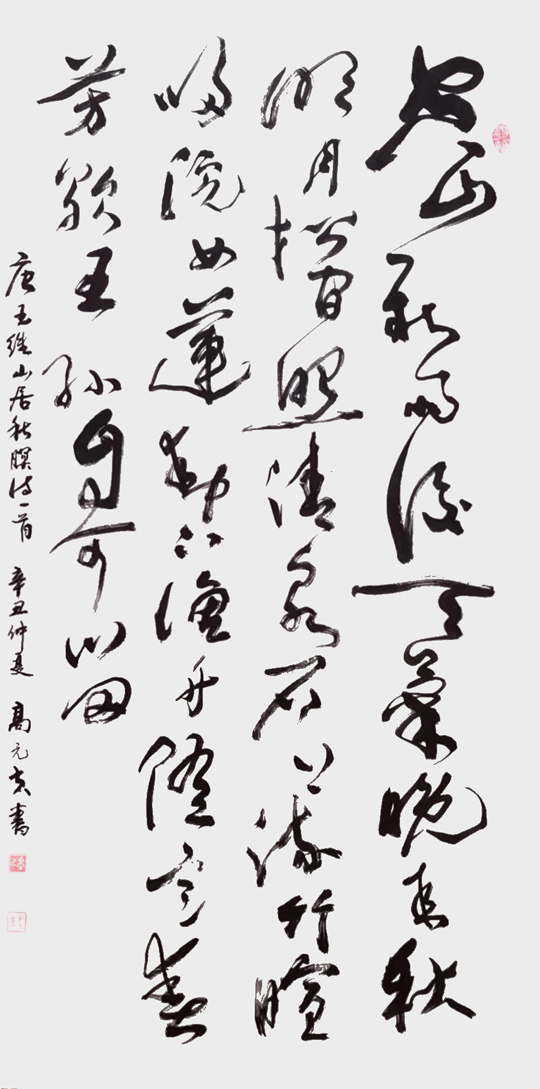 空山新雨後天氣晚來秋
明月松間照清泉石上流竹喧
歸浣女蓮動下漁舟隨意春
芳歇王孫自可留
唐王維山居秋暝诗一首 辛丑仲夏 高元書